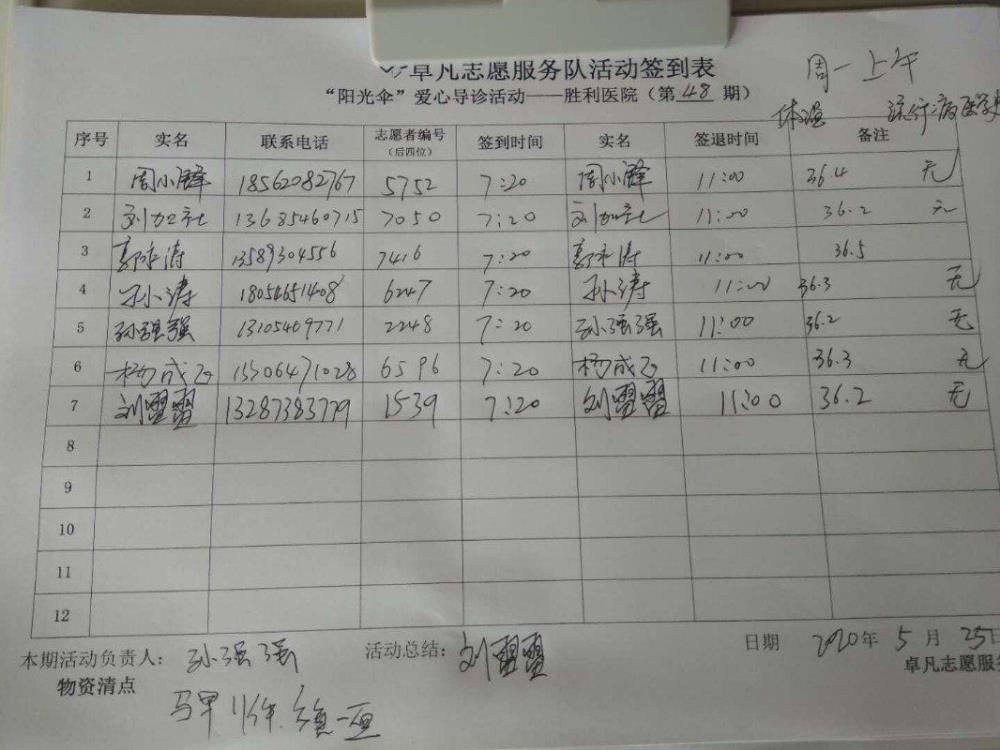 卓凡志愿服务队活动签到表 周一上午
“阳光伞”爱心导诊活动——胜利医院（第 48 期）
体温 流行病医学
序号 实名 联系电话 志愿者编号（后四位） 签到时间 实名 签退时间 备注
1 周小峰 18562082767 5752 7:20 周小峰 11:00 36.4 无
2 刘加社 13685460715 7050 7:20 刘加社 11:00 36.2 无
3 郭永涛 13589304556 7416 7:20 郭永涛 11:00 36.5
4 孙涛 18054651408 6247 7:20 孙涛 11:00 36.3 无
5 孙强强 13105469771 2248 7:20 孙强强 11:00 36.2 无
6 杨成 6596 7:20 杨成 11:00 36.3 无
7 刘 13287383779 1539 7:20 刘 11:00 36.2 无
8
9
10
11
12
本期活动负责人： 孙强强 活动总结： 刘 日期 2020年 5 月 25日
卓凡志愿服务
物资清点
马甲 11件